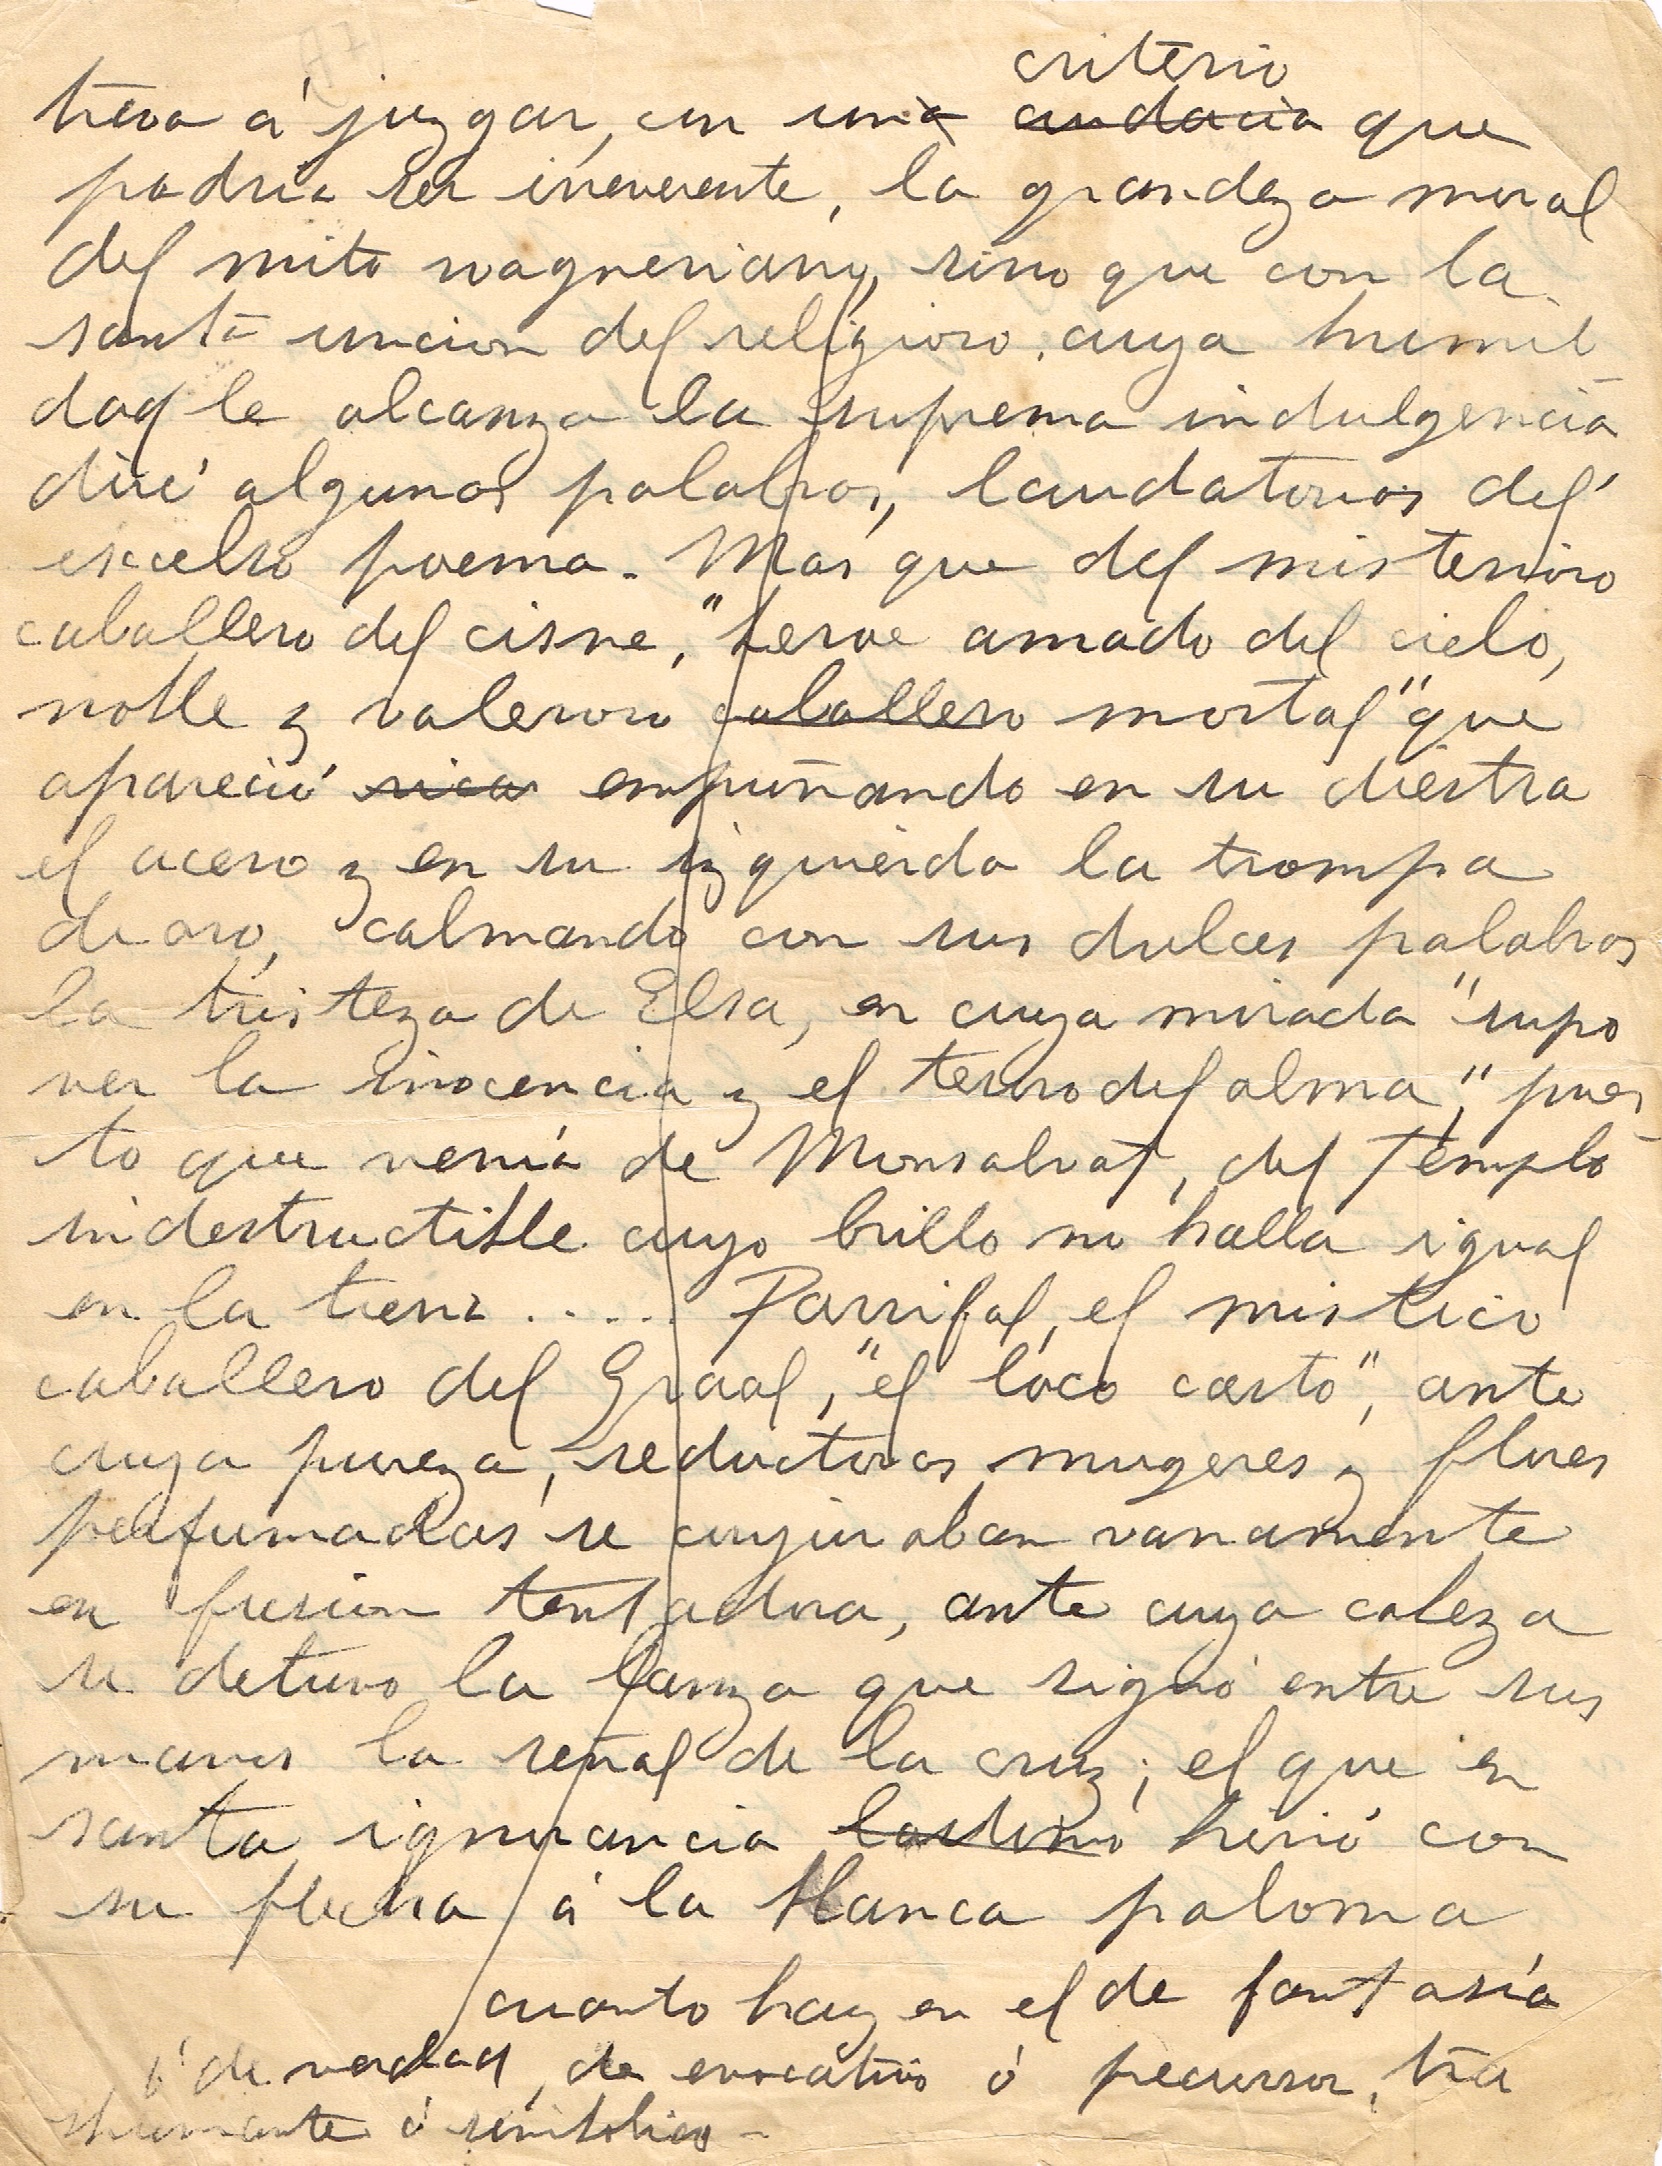 criterio
treva á juzgar, con una audacia que
podria ser irreverente, la grandeza moral
del mito wagneriano, sino que con la
santa uncion del religioso, cuya humil
dad le alcanza la suprema indulgencia
diré algunas palabras, laudatorias del
excelso poema. Mas que del misterioso
caballero del cisne, "heroe amado del cielo,
noble y valeroso caballero mortal" que
apareció empuñando en su diestra
el acero y en su izquierda la trompa
de oro, calmando con sus dulces palabras
la tristeza de Elsa, en cuya mirada "supo
ver la inocencia y el terso del alma", pues
to que venía de Monsalvat, del Templo
indestructible cuyo brillo no halla igual
en la tierra ..... Parsifal, el mistico
caballero del Graal, "el loco casto", ante
cuya pureza, seductoras mugeres y flores
perfumadas se conjuraban vanamente
en fusion tentadora, ante cuya cabeza
se detuvo la lanza que signó entre sus
manos la señal de la cruz; el que en
santa ignorancia hirió con
su flecha á la blanca paloma
cuanto hay en el de fantasía
ó de verdad, de evocativo ó precursor, tra
ó simbolico -